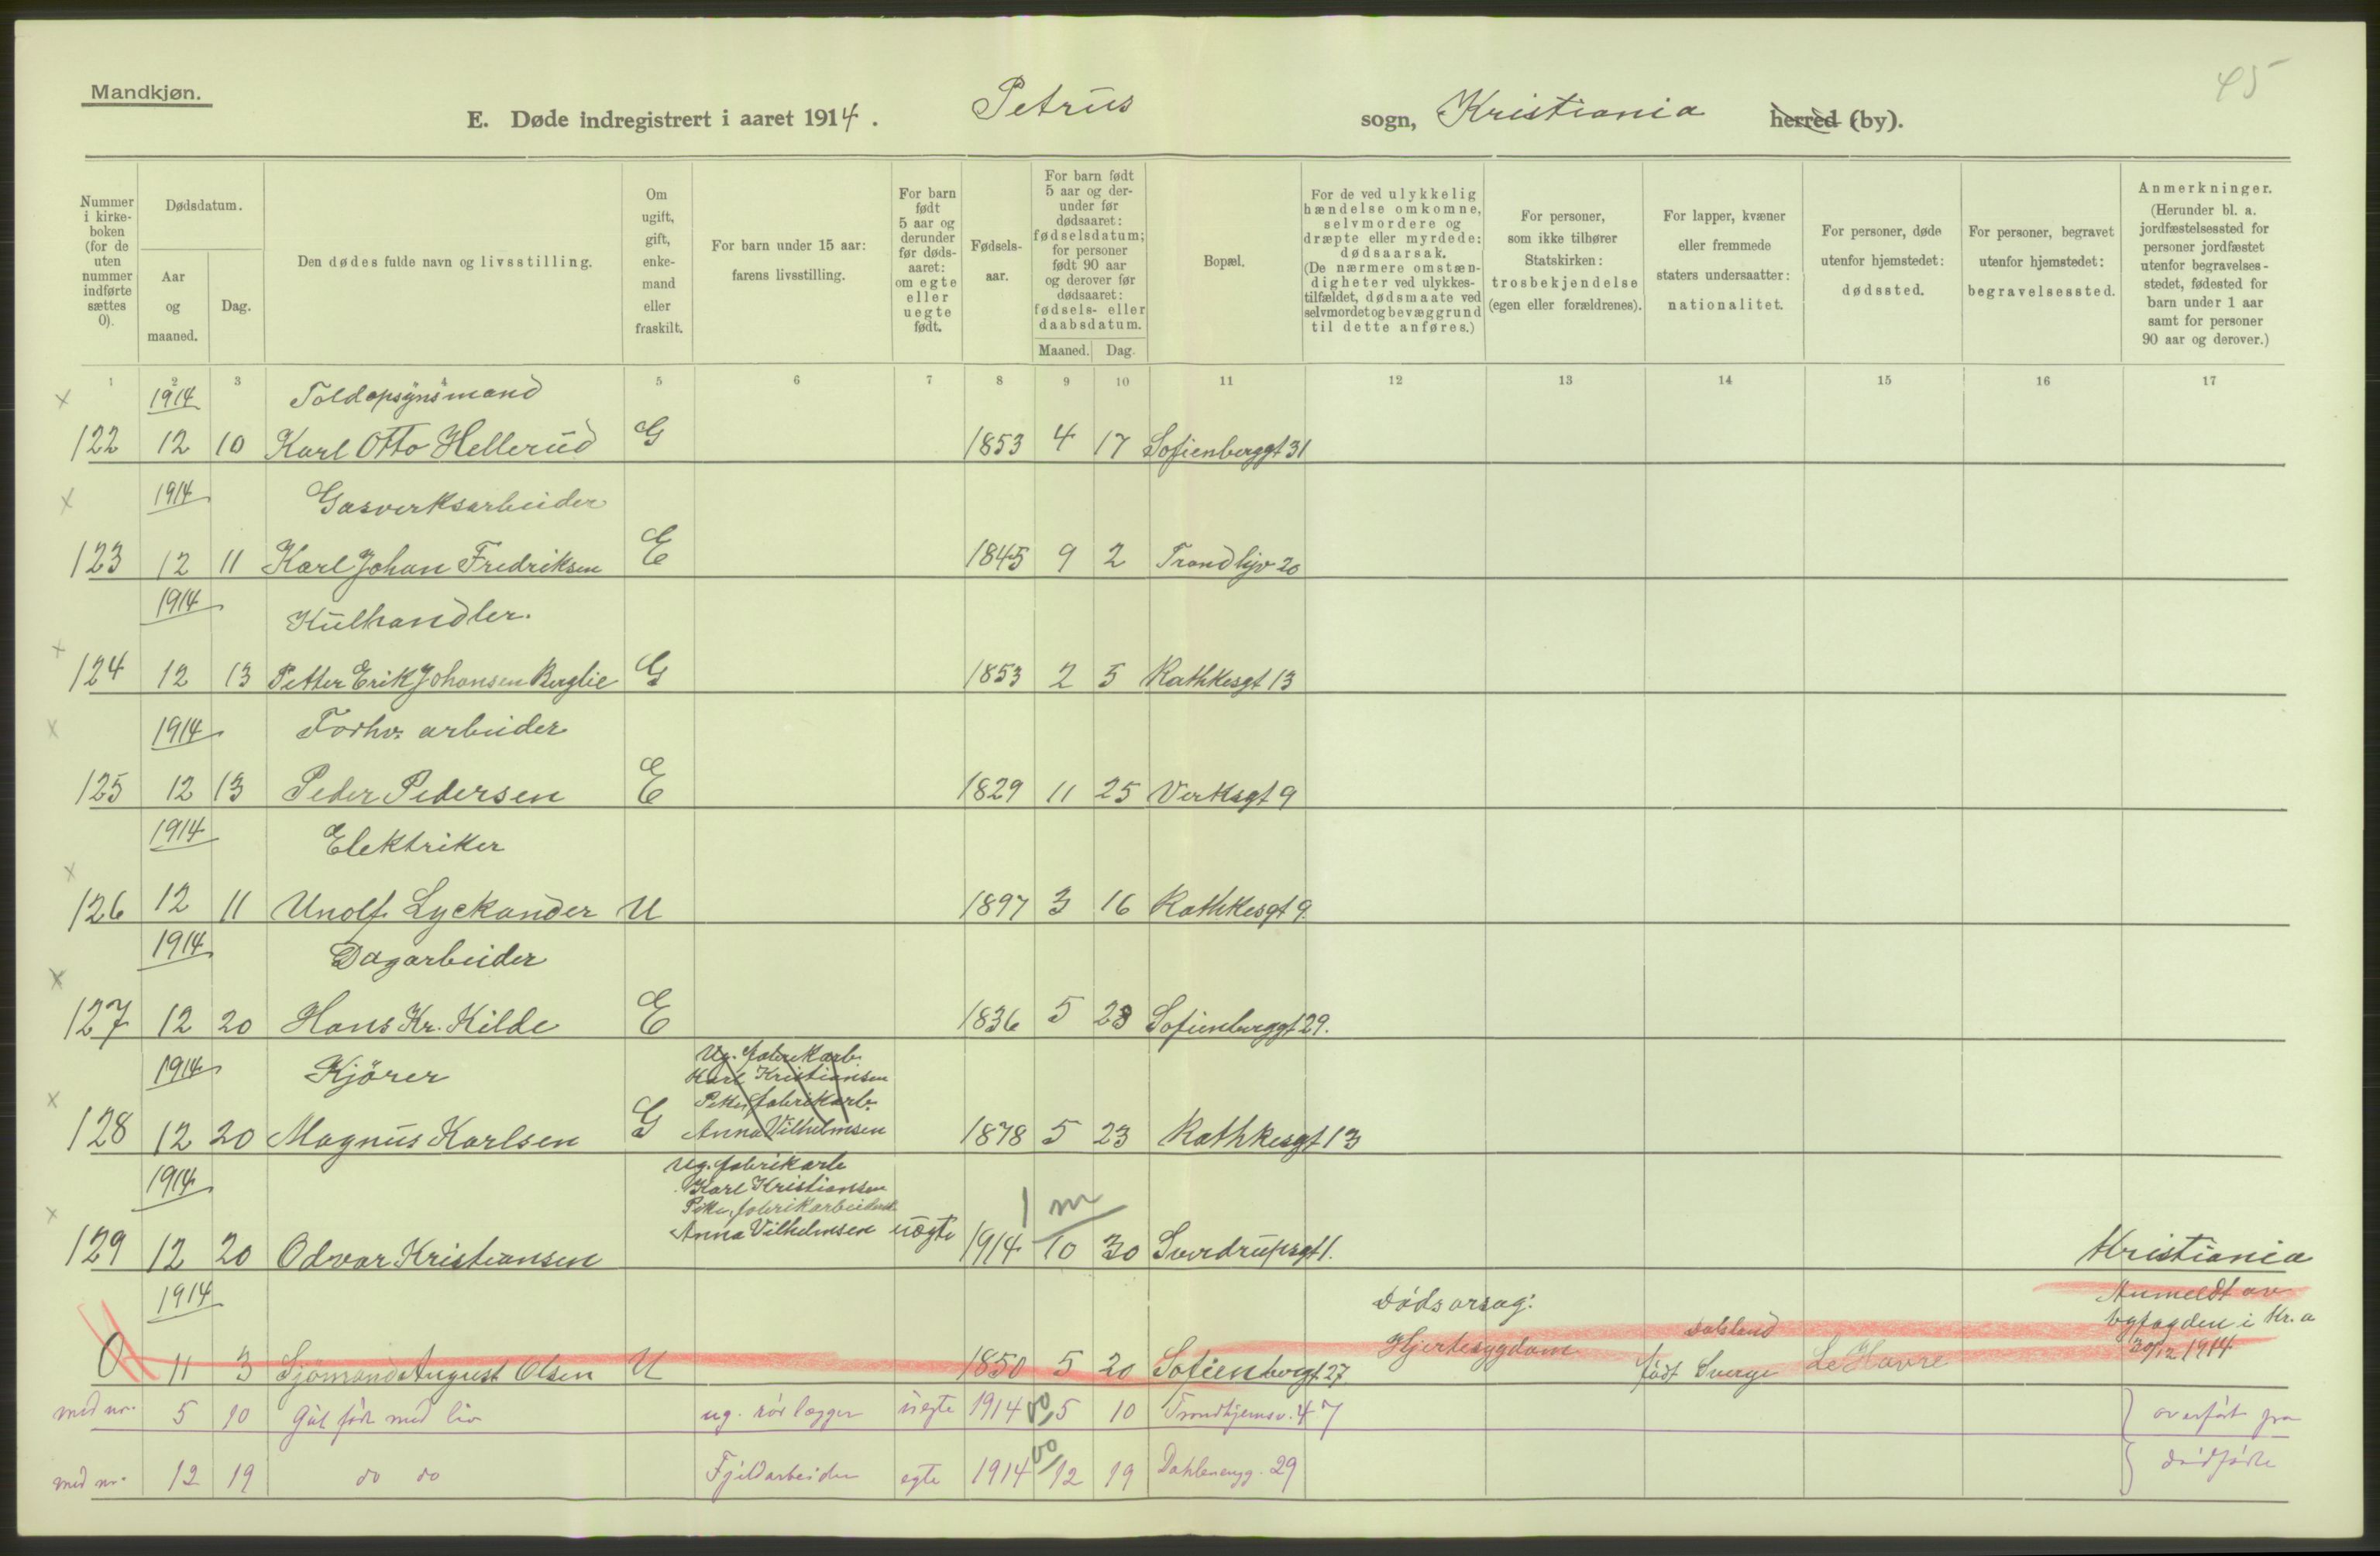 45
Mandkjøn.
E. Døde indregistrert i aaret 1914. Petrus sogn, Kristiania herred (by).
Nummer i kirke-boken (for de uten nummer indførte sættes 0).
Dødsdatum.
Aar og maaned.
Dag.
Den dødes fulde navn og livsstilling.
Om ugift, gift, enke-mand eller fraskilt.
For barn under 15 aar: farens livsstilling.
For barn født 5 aar og derunder før døds-aaret: om egte eller uegte født.
Fødsels-aar.
For barn født 5 aar og der-under før dødsaaret: fødselsdatum; for personer født 90 aar og derover før dødsaaret: fødsels- eller daabsdatum.
Maaned. Dag.
Bopæl.
For de ved ulykkelig hændelse omkomne, selvmordere og dræpte eller myrdede: dødsaarsak. (De nærmere omstæn-digheter ved ulykkes-tilfældet, dødsmaate ved selvmordet og bevæggrund til dette anføres.)
For personer, som ikke tilhører Statskirken: trosbekjendelse (egen eller forældrenes).
For lapper, kvæner eller fremmede staters undersaatter: nationalitet.
For personer, døde utenfor hjemstedet: dødssted.
For personer, begravet utenfor hjemstedet: begravelsessted.
Anmerkninger. (Herunder bl. a. jordfæstelsessted for personer jordfæstet utenfor begravelses-stedet, fødested for barn under 1 aar samt for personer 90 aar og derover.)
1 2 3 4 5 6 7 8 9 10 11 12 13 14 15 16 17
x 1914 Toldopsynsmand
122 12 10 Karl Otto Hellerud G 1853 4 17 Sofienberggt 31
x 1914 Gasverksarbeider
123 12 11 Karl Johan Fredriksen E 1845 9 2 Trondhjv 20
1914 Kulhandler.
x 124 12 13 Petter Erik Johansen Berglie G 1853 2 5 Rathkesgt 13
x 1914 Forhv. arbeider
125 12 13 Peder Pedersen E 1829 11 25 Verksgt 9
1914 Elektriker
x 126 12 11 Unolf Lyckander U 1897 3 16 Rathkesgt 9.
1914 Dagarbeider
x 127 12 20 Hans Kr. Kilde E 1836 5 23 Sofienberggt 29.
1914 Kjörer Ug. fabrikarb. Karl Kristiansen
x 128 12 20 Magnus Karlsen G Pike, fabrikarb. Anna Vilhelmsen 1878 5 23 Rathkesgt 13
1914 Ug. fabrikarb Karl Kristiansen
x 129 12 20 Odvar Kristiansen Pike, fabrikarbeiderske Anna Vilhelmsen uegte 1914 1 m 10 30 Sverdrupsgt 1. Kristiania
1914 Dödsarsag: Anmeldt av byfogden i Kr.a 30/12 1914
0 11 3 Sjömand August Olsen U 1850 5 20 Sofienbergt 27 Hjertesygdom Dalsland født Sverge Le Havre
med nr. 5 10 Gut født med liv ug. rörlægger uegte 1914 00 5 10 Trondhjemsv. 47 overført fra
med nr. 12 19 do do Fjeldarbeider egte 1914 00 12 19 Dahlenengg. 29 dødfødte